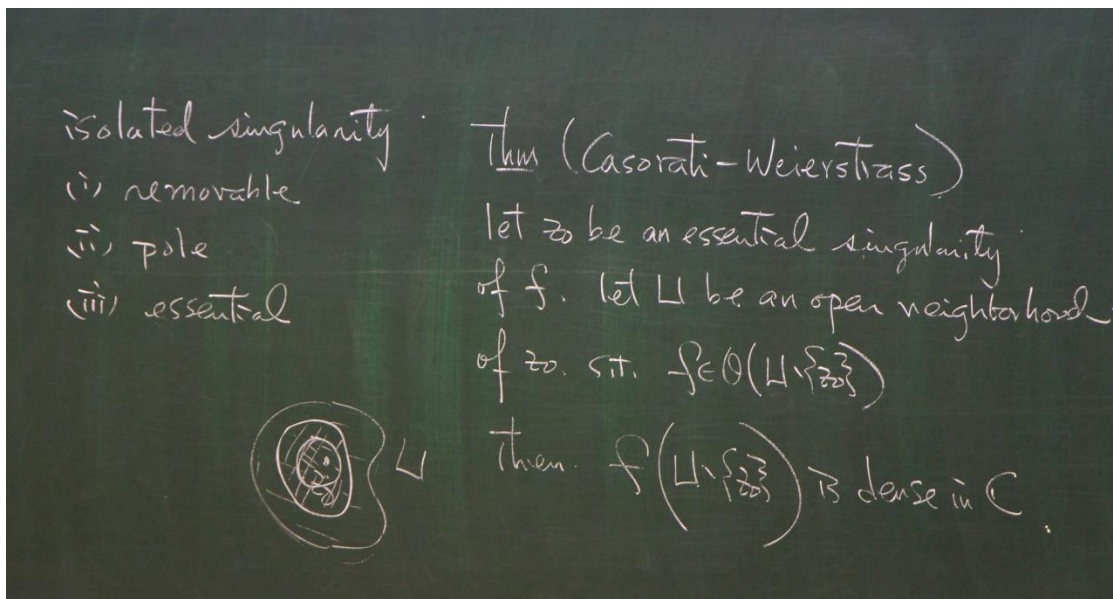 isolated singularity
(i) removable
(ii) pole
(iii) essential
Thm (Casorati-Weierstrass)
let z₀ be an essential singularity
of f. let U be an open neighborhood
of z₀. s.t. f∈O(U∖{z₀})
Then. f(U∖{z₀}) is dense in C.
U